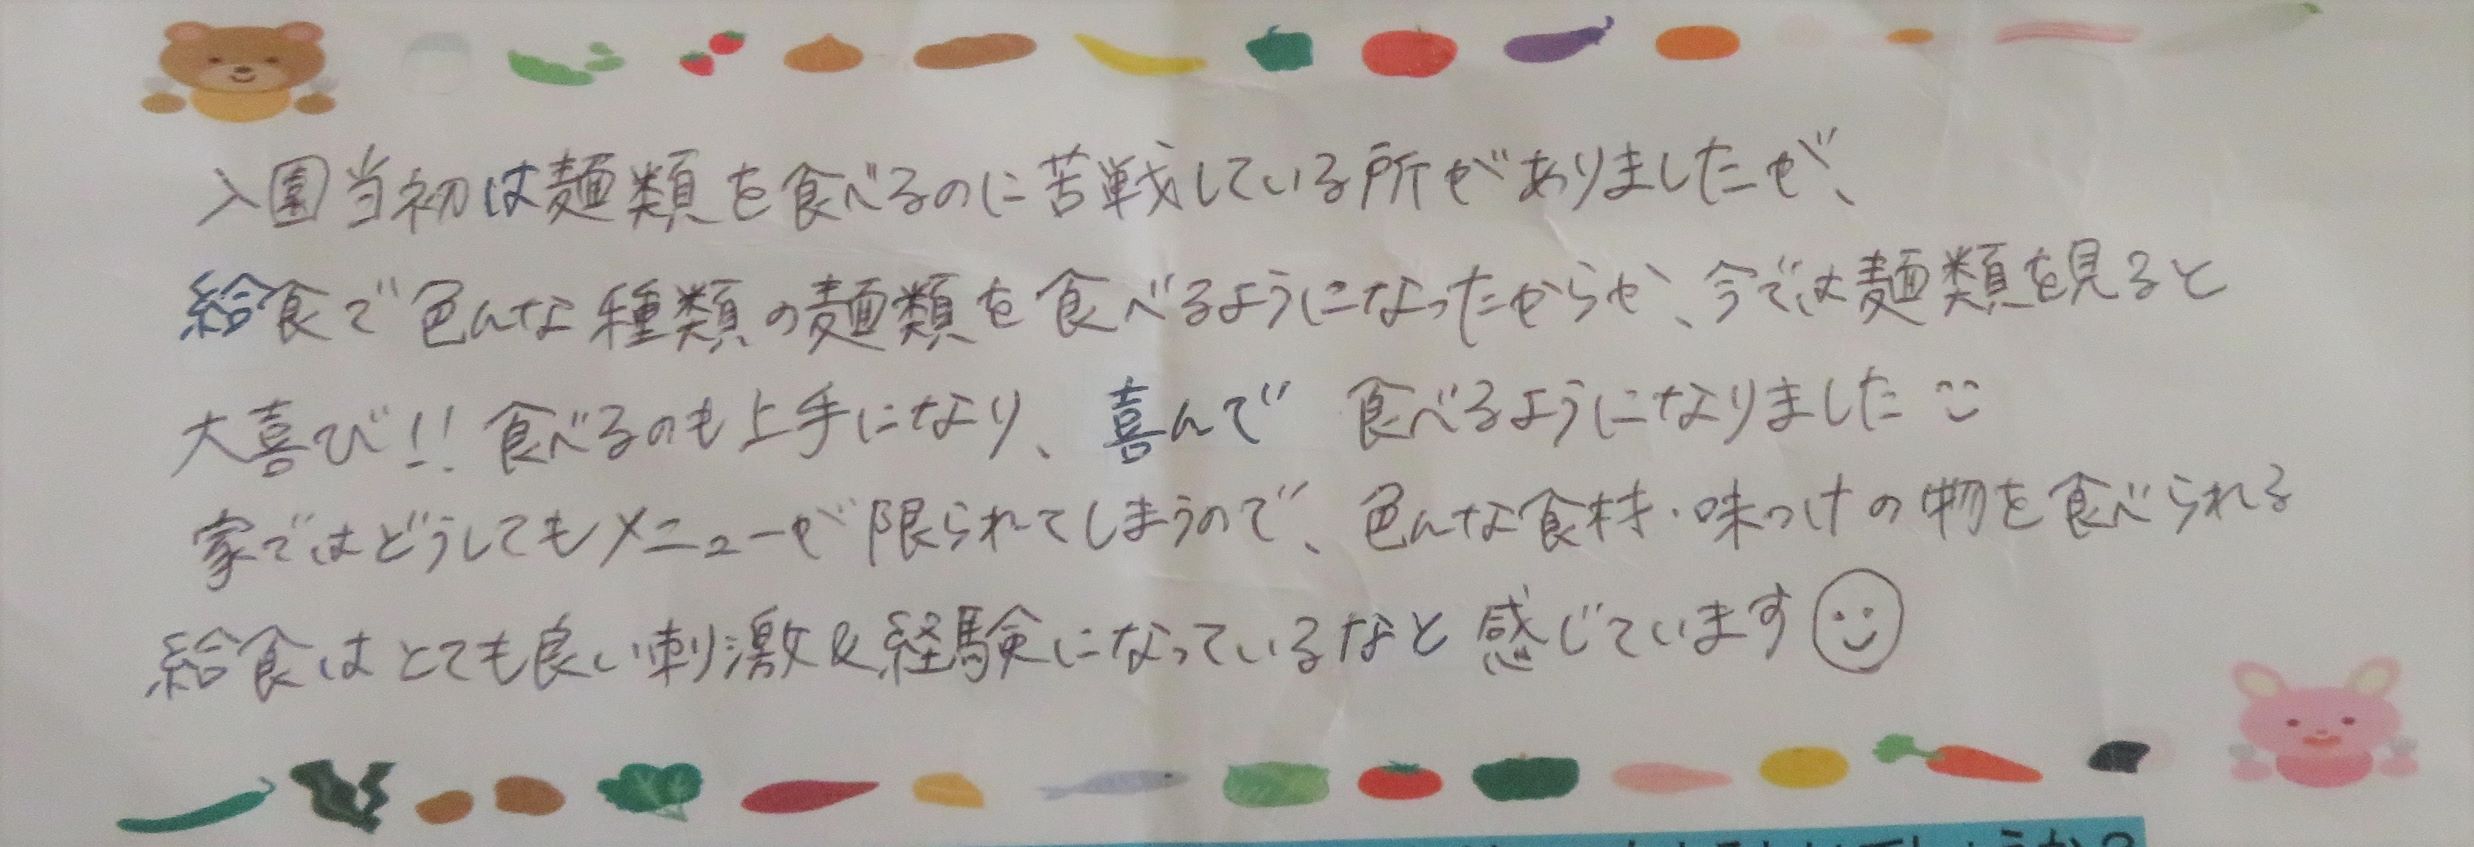 入園当初は麺類を食べるのに苦戦している所がありましたが、
給食で色んな種類の麺類を食べるようになったからか、今では麺類を見ると
大喜び!! 食べるのも上手になり、喜んで 食べるようになりました
家ではどうしてもメニューが限られてしまうので、色んな食材・味つけの物を食べられる
給食はとても良い刺激&経験になっているなと感じています
でしょうか?